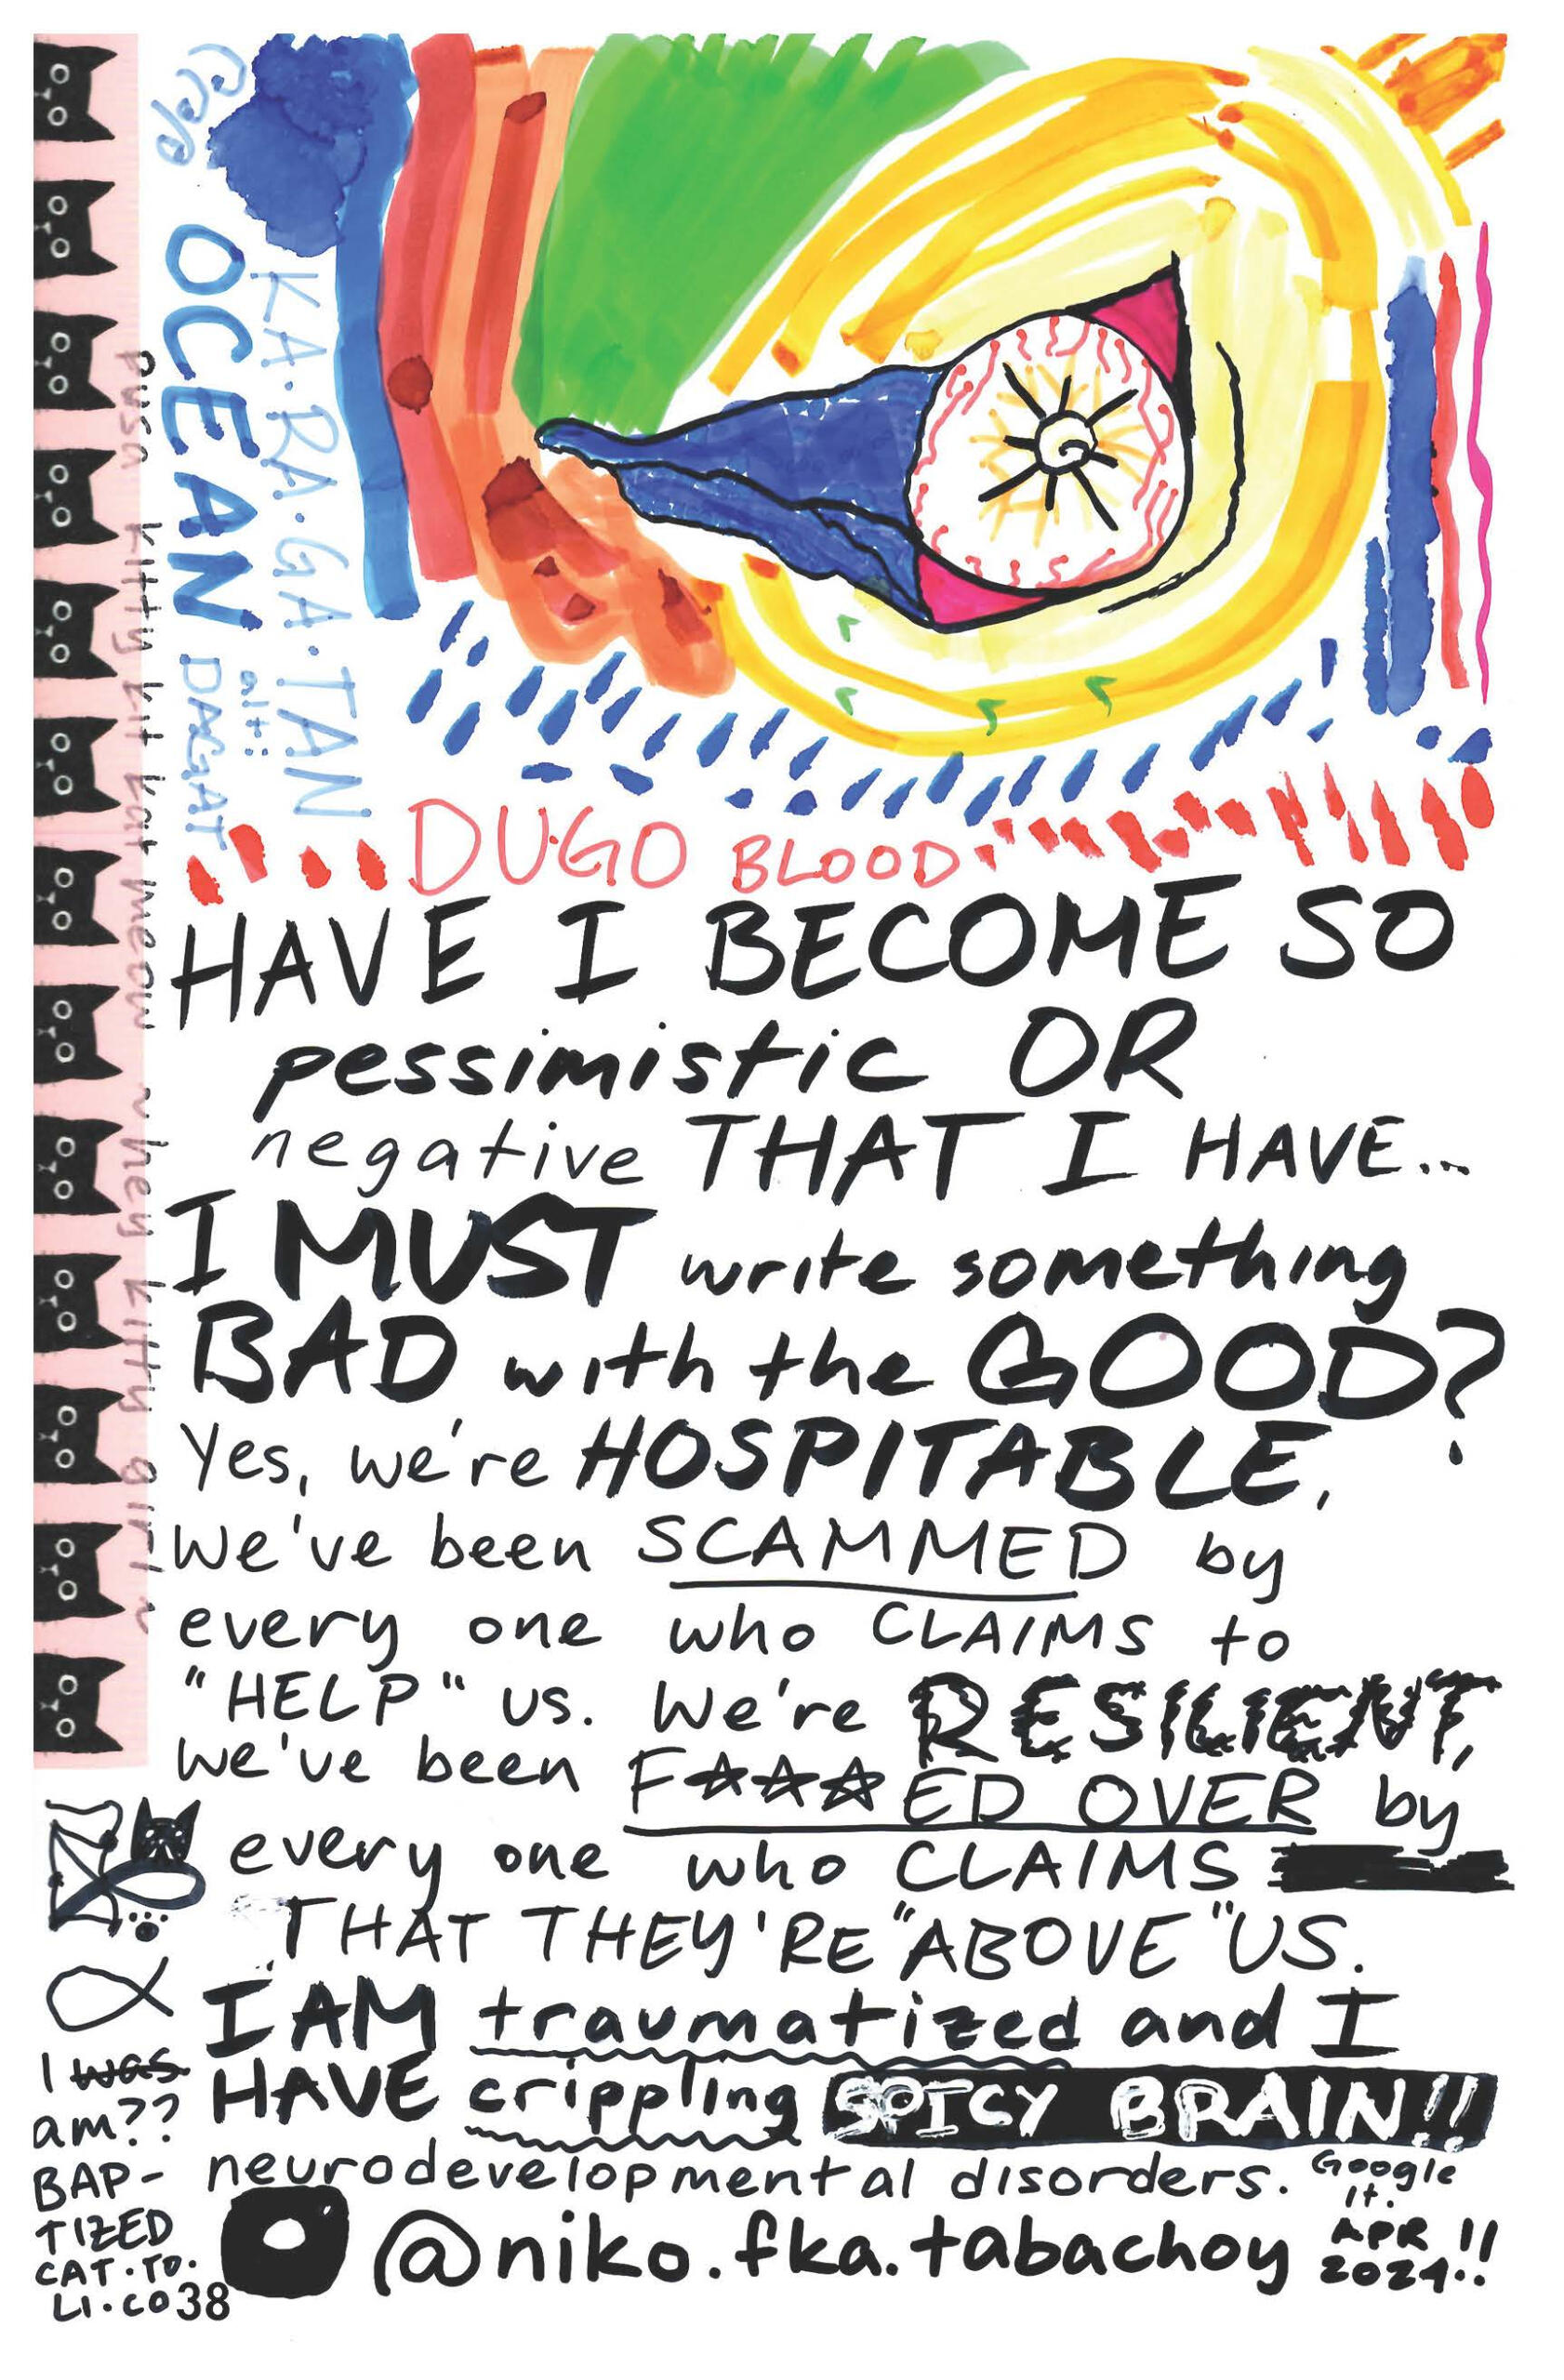 OCEAN
KA·RA·GA·TAN
alt:
DAGAT
pusa kitty kit kat meow ~hey kitty girl~
DUGO BLOOD
HAVE I BECOME SO
pessimistic OR
negative THAT I HAVE...
I MUST write something
BAD with the GOOD?
Yes, we're HOSPITABLE,
We've been SCAMMED by
every one who CLAIMS to
"HELP" us. We're RESILIENT,
we've been F☆☆☆ED OVER by
every one who CLAIMS
THAT THEY'RE "ABOVE" US.
I AM traumatized and I
HAVE crippling SPICY BRAIN!!
neurodevelopmental disorders. Google
It.
@niko.fka.tabachoy APR
2024!!
I was
am??
BAP-
TIZED
CAT·TO·
LI·CO
38